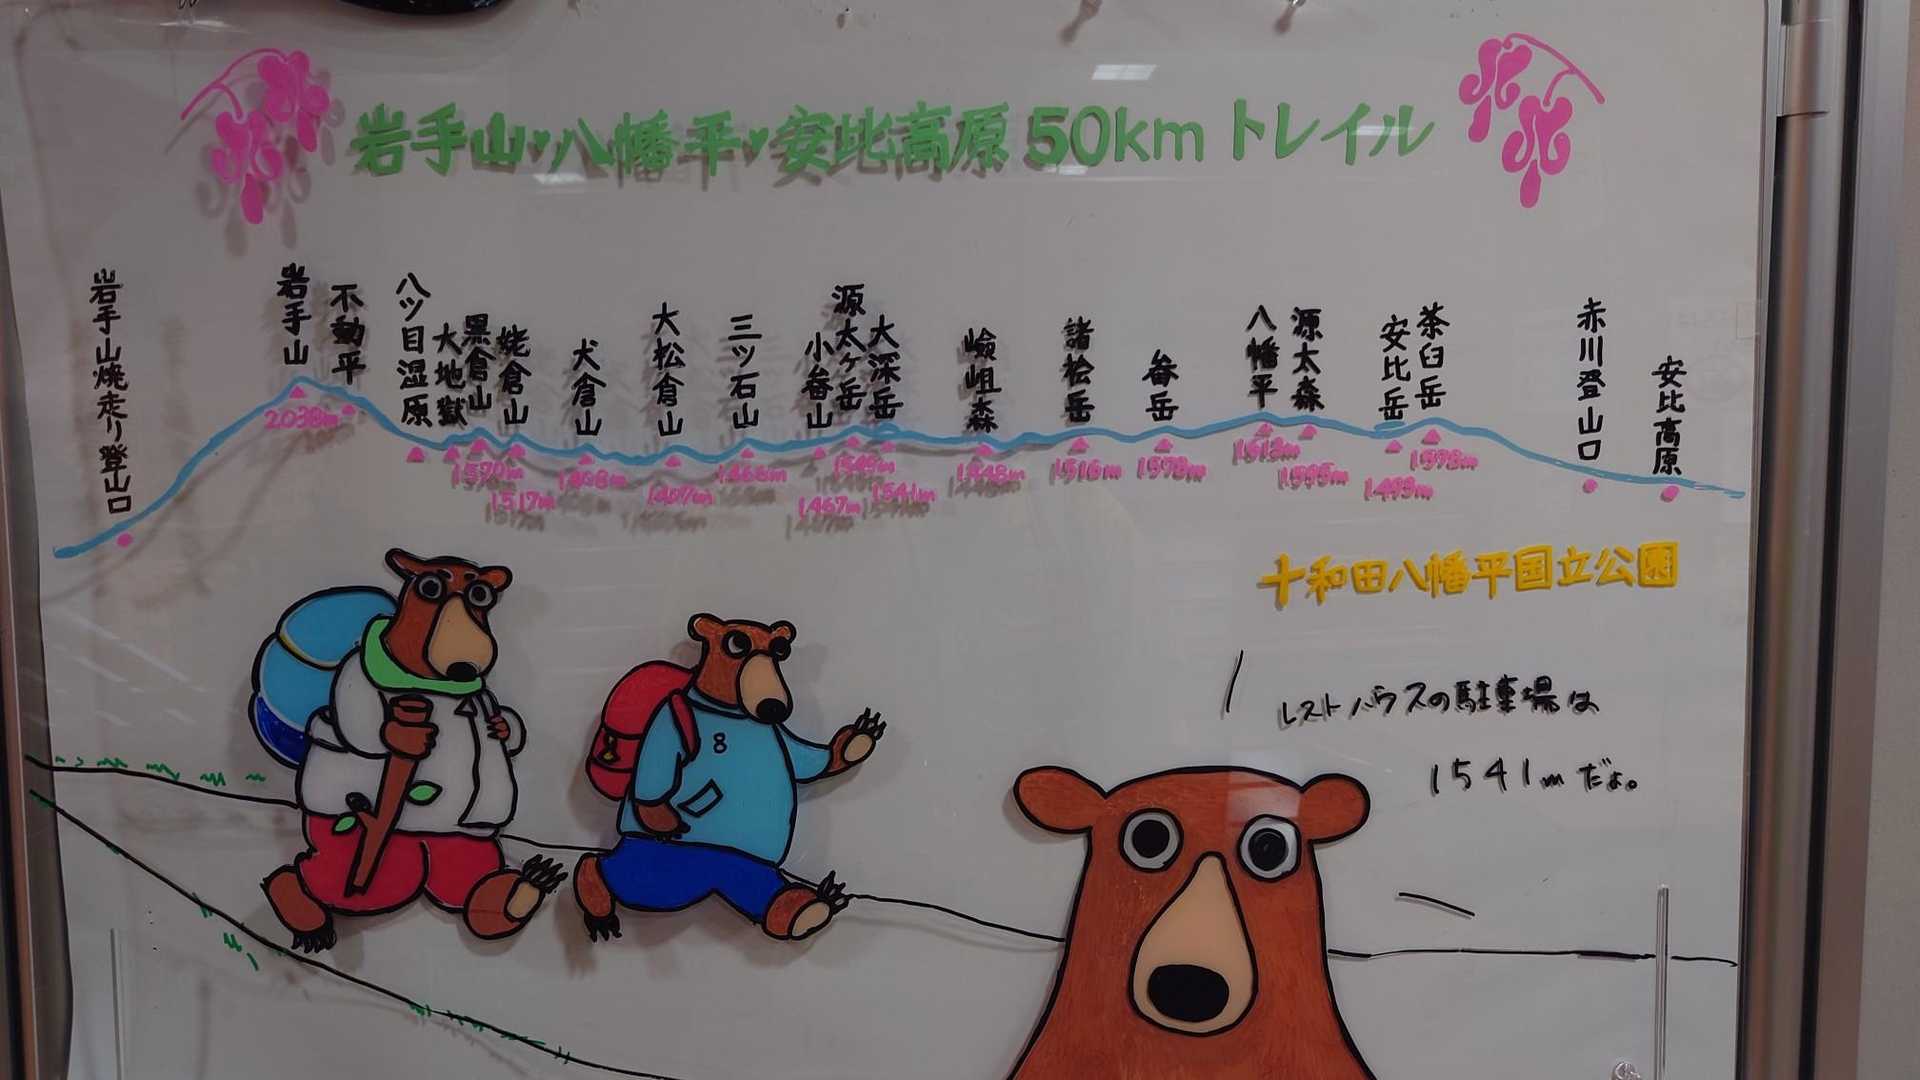 岩手山・八幡平・安比高原50kmトレイル
岩手山焼走り登山口
岩手山
不動平
八ツ目湿原
大地獄
黒倉山
姥倉山
犬倉山
大松倉山
三ツ石山
小畚山
源太ヶ岳
大深岳
嶮岨森
諸桧岳
畚岳
八幡平
源太森
安比岳
茶臼岳
赤川登山口
安比高原
2038m
1570m
1517m
1408m
1407m
1466m
1467m
1545m
1541m
1448m
1516m
1578m
1613m
1595m
1493m
1578m
十和田八幡平国立公園
レストハウスの駐車場は
1541mだよ。
8